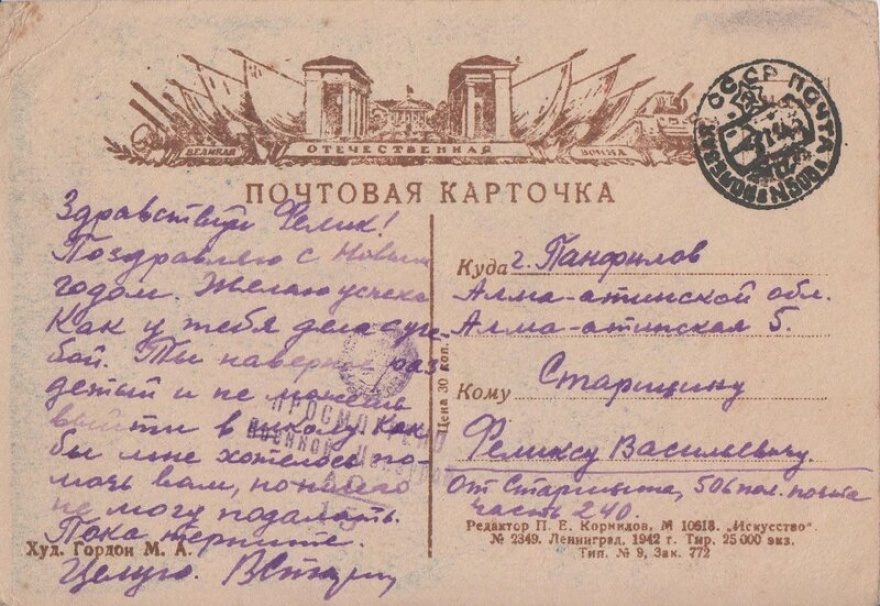 ВЕЛИКАЯ ОТЕЧЕСТВЕННАЯ ВОЙНА
ПОЧТОВАЯ КАРТОЧКА
СССР ПОЧТА
ПОЛЕВАЯ
Здравствуй Фелик!
Поздравляю с Новым
годом. Желаю успеха
Как у тебя дела с уче-
бой. Ты наверно раз
детый и не можешь
выйти в школу. Как
бы мне хотелось по-
мочь вам, но ничего
не могу поделать.
Пока терпите.
Целую.
ПРОСМОТРЕНО
Военной Цензурой
Худ. Гордон М. А.
Цена 30 коп.
Куда г. Панфилов
Алма-атинской обл.
Алма-атинская 5.
Кому Старицину
Феликсу Васильевичу.
От Старицина, 506 пол. почта
часть 240.
Редактор П. Е. Корнилов, М 10618. „Искусство“.
№ 2349. Ленинград, 1942 г. Тир. 25 000 экз.
Тип. № 9, Зак. 772